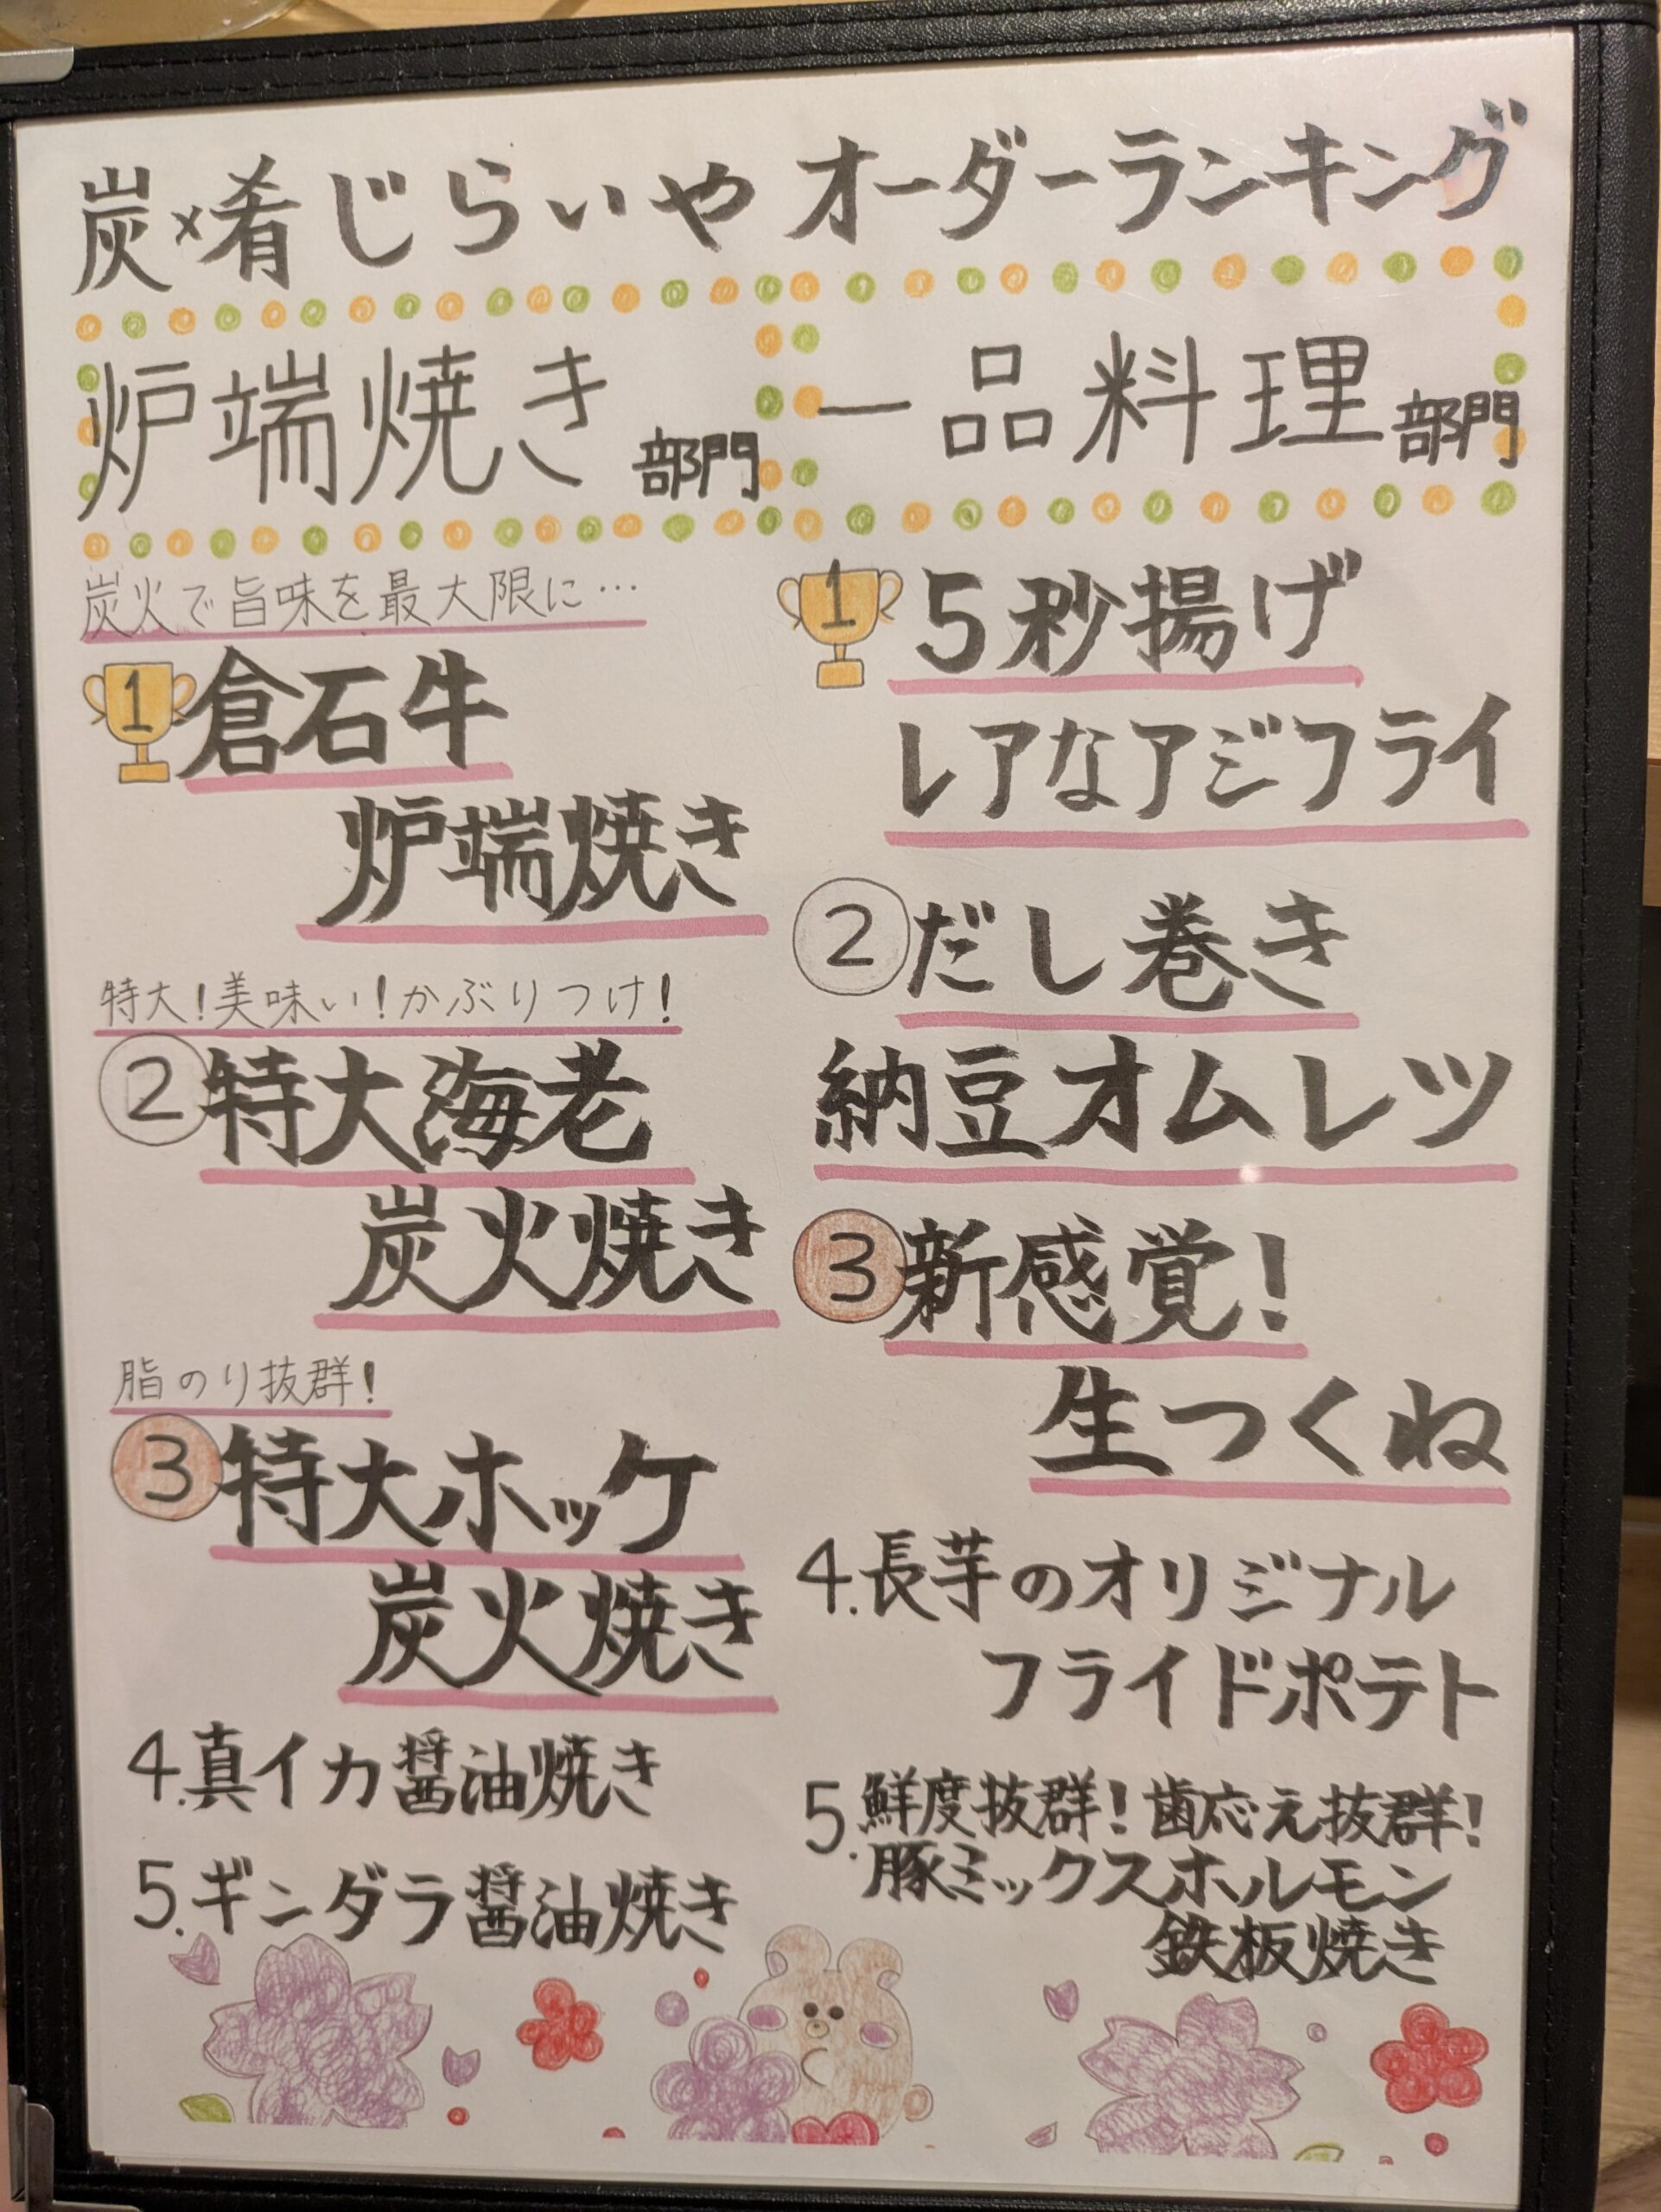 炭×肴じらいや オーダーランキング
炉端焼き 部門
炭火で旨味を最大限に…
1 倉石牛
炉端焼き
特大!美味い!かぶりつけ!
② 特大海老
炭火焼き
脂のり抜群!
③ 特大ホッケ
炭火焼き
4.真イカ醤油焼き
5.ギンダラ醤油焼き
一品料理 部門
1 5秒揚げ
レアなアジフライ
② だし巻き
納豆オムレツ
③ 新感覚!
生つくね
4.長芋のオリジナル
フライドポテト
5.鮮度抜群!歯応え抜群!
豚ミックスホルモン
鉄板焼き